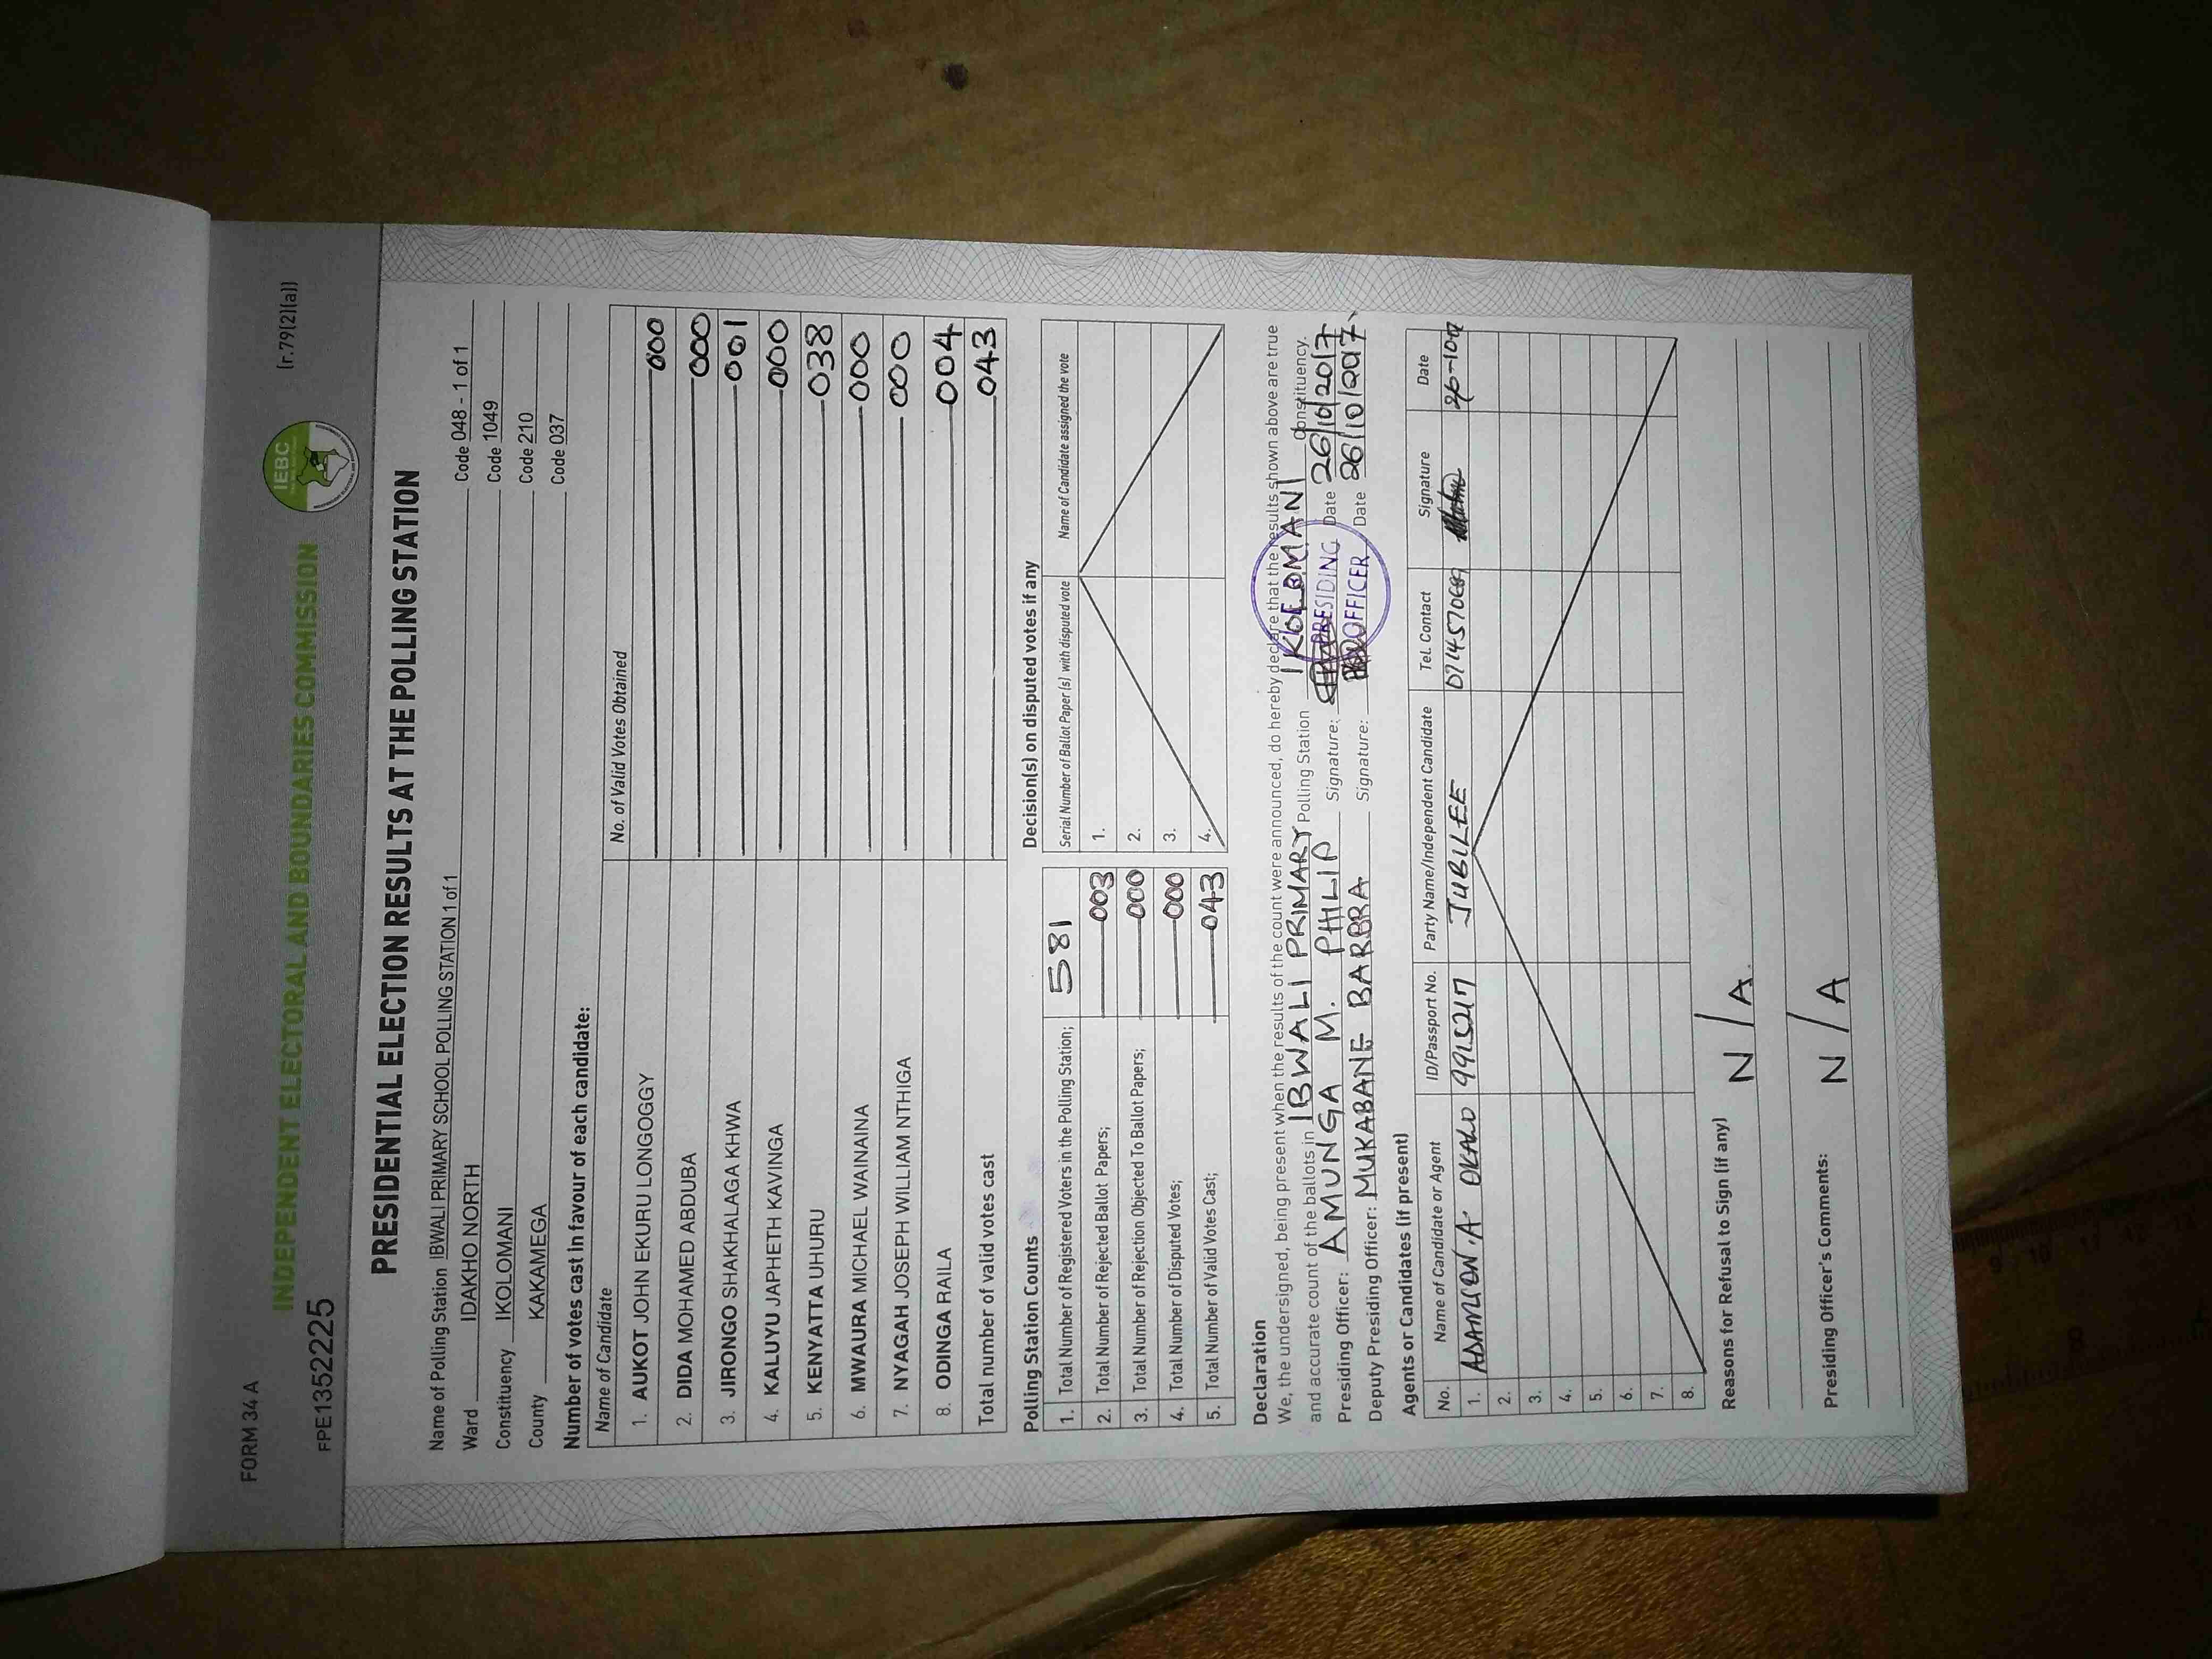 FORM 34 A
(r.79(2)(a))
INDEPENDENT ELECTORAL AND BOUNDARIES COMMISSION
IEBC
FPE1352225
PRESIDENTIAL ELECTION RESULTS AT THE POLLING STATION
Name of Polling Station IBWALI PRIMARY SCHOOL POLLING STATION 1 of 1 Code 048 - 1 of 1
Ward IDAKHO NORTH Code 1049
Constituency IKOLOMANI Code 210
County KAKAMEGA Code 037
Number of votes cast in favour of each candidate:
Name of Candidate No. of Valid Votes Obtained
1. AUKOT JOHN EKURU LONGOGGY 000
2. DIDA MOHAMED ABDUBA 000
3. JIRONGO SHAKHALAGA KHWA 001
4. KALUYU JAPHETH KAVINGA 000
5. KENYATTA UHURU 038
6. MWAURA MICHAEL WAINAINA 000
7. NYAGAH JOSEPH WILLIAM NTHIGA 000
8. ODINGA RAILA 004
Total number of valid votes cast 043
Polling Station Counts
1. Total Number of Registered Voters in the Polling Station; 581
2. Total Number of Rejected Ballot Papers; 003
3. Total Number of Rejection Objected To Ballot Papers; 000
4. Total Number of Disputed Votes; 000
5. Total Number of Valid Votes Cast; 043
Decision(s) on disputed votes if any
Serial Number of Ballot Paper(s) with disputed vote Name of Candidate assigned the vote
1.
2.
3.
4.
Declaration
We, the undersigned, being present when the results of the count were announced, do hereby declare that the results shown above are true
and accurate count of the ballots in IBWALI PRIMARY Polling Station IKOLOMANI Constituency.
Presiding Officer: AMUNGA M. PHILIP Signature: Date 26/10/2017
Deputy Presiding Officer: MUKABANE BARBRA Signature: Date 26/10/2017
PRESIDING
OFFICER
Agents or Candidates (if present)
No. Name of Candidate or Agent ID/Passport No. Party Name/Independent Candidate Tel. Contact Signature Date
1. 9915217 JUBILEE
2.
3.
4.
5.
6.
7.
8.
Reasons for Refusal to Sign (if any)
N/A.
Presiding Officer's Comments:
N/A